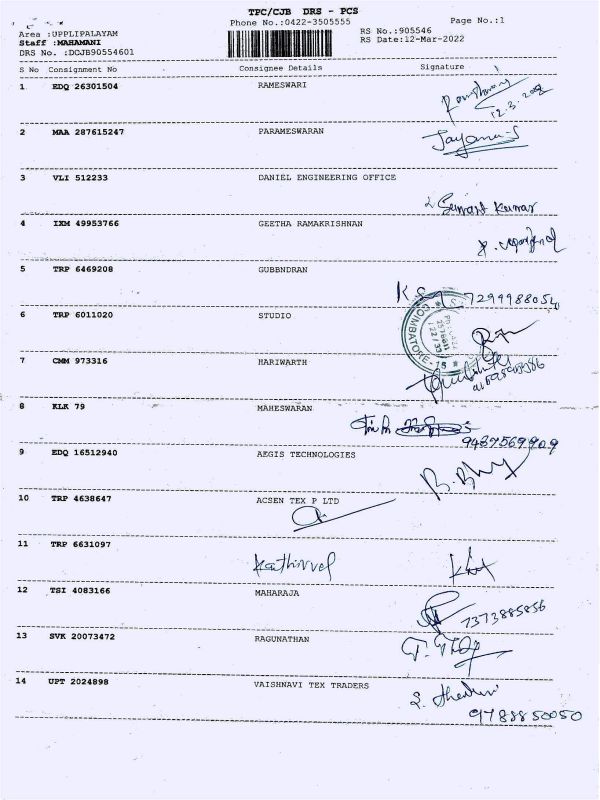 TPC/CJB DRS - PCS
Phone No.:0422-3505555
Page No.:1
Area :UPPLIPALAYAM
RS No.:905546
Staff :MAHAMANI
RS Date:12-Mar-2022
DRS No. :DCJB90554601
S No Consignment No Consignee Details Signature
1 EDQ 26301504 RAMESWARI
12.3.2022
2 MAA 287615247 PARAMESWARAN
Jayama-S
3 VLI 512233 DANIEL ENGINEERING OFFICE
Kumar
4 IXM 49953766 GEETHA RAMAKRISHNAN
5 TRP 6469208 GUBBNDRAN
6 TRP 6011020 STUDIO
COIMBATORE-18
7 CMM 973316 HARIWARTH
8 KLK 79 MAHESWARAN
9 EDQ 16512940 AEGIS TECHNOLOGIES
10 TRP 4638647 ACSEN TEX P LTD
11 TRP 6631097
Kathirvel
12 TSI 4083166 MAHARAJA
7373885856
13 SVK 20073472 RAGUNATHAN
14 UPT 2024898 VAISHNAVI TEX TRADERS
9788850050